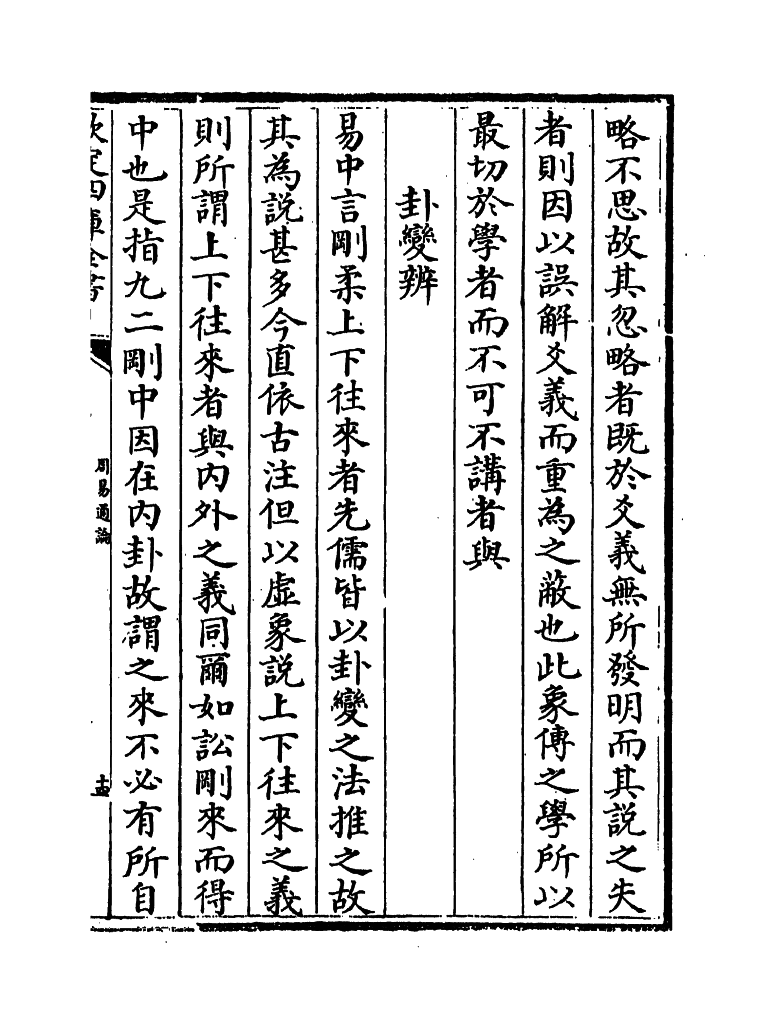 略不思故其忽略者既於爻義無所發明而其説之失
者則因以誤解爻義而重為之蔽也此象傳之學所以
最切於學者而不可不講者與
卦變辨
易中言剛柔上下往來者先儒皆以卦變之法推之故
其為説甚多今直依古注但以虛象説上下往來之義
則所謂上下往來者與内外之義同爾如訟剛來而得
中也是指九二剛中因在内卦故謂之來不必有所自
欽定四庫全書
周易通論
十四